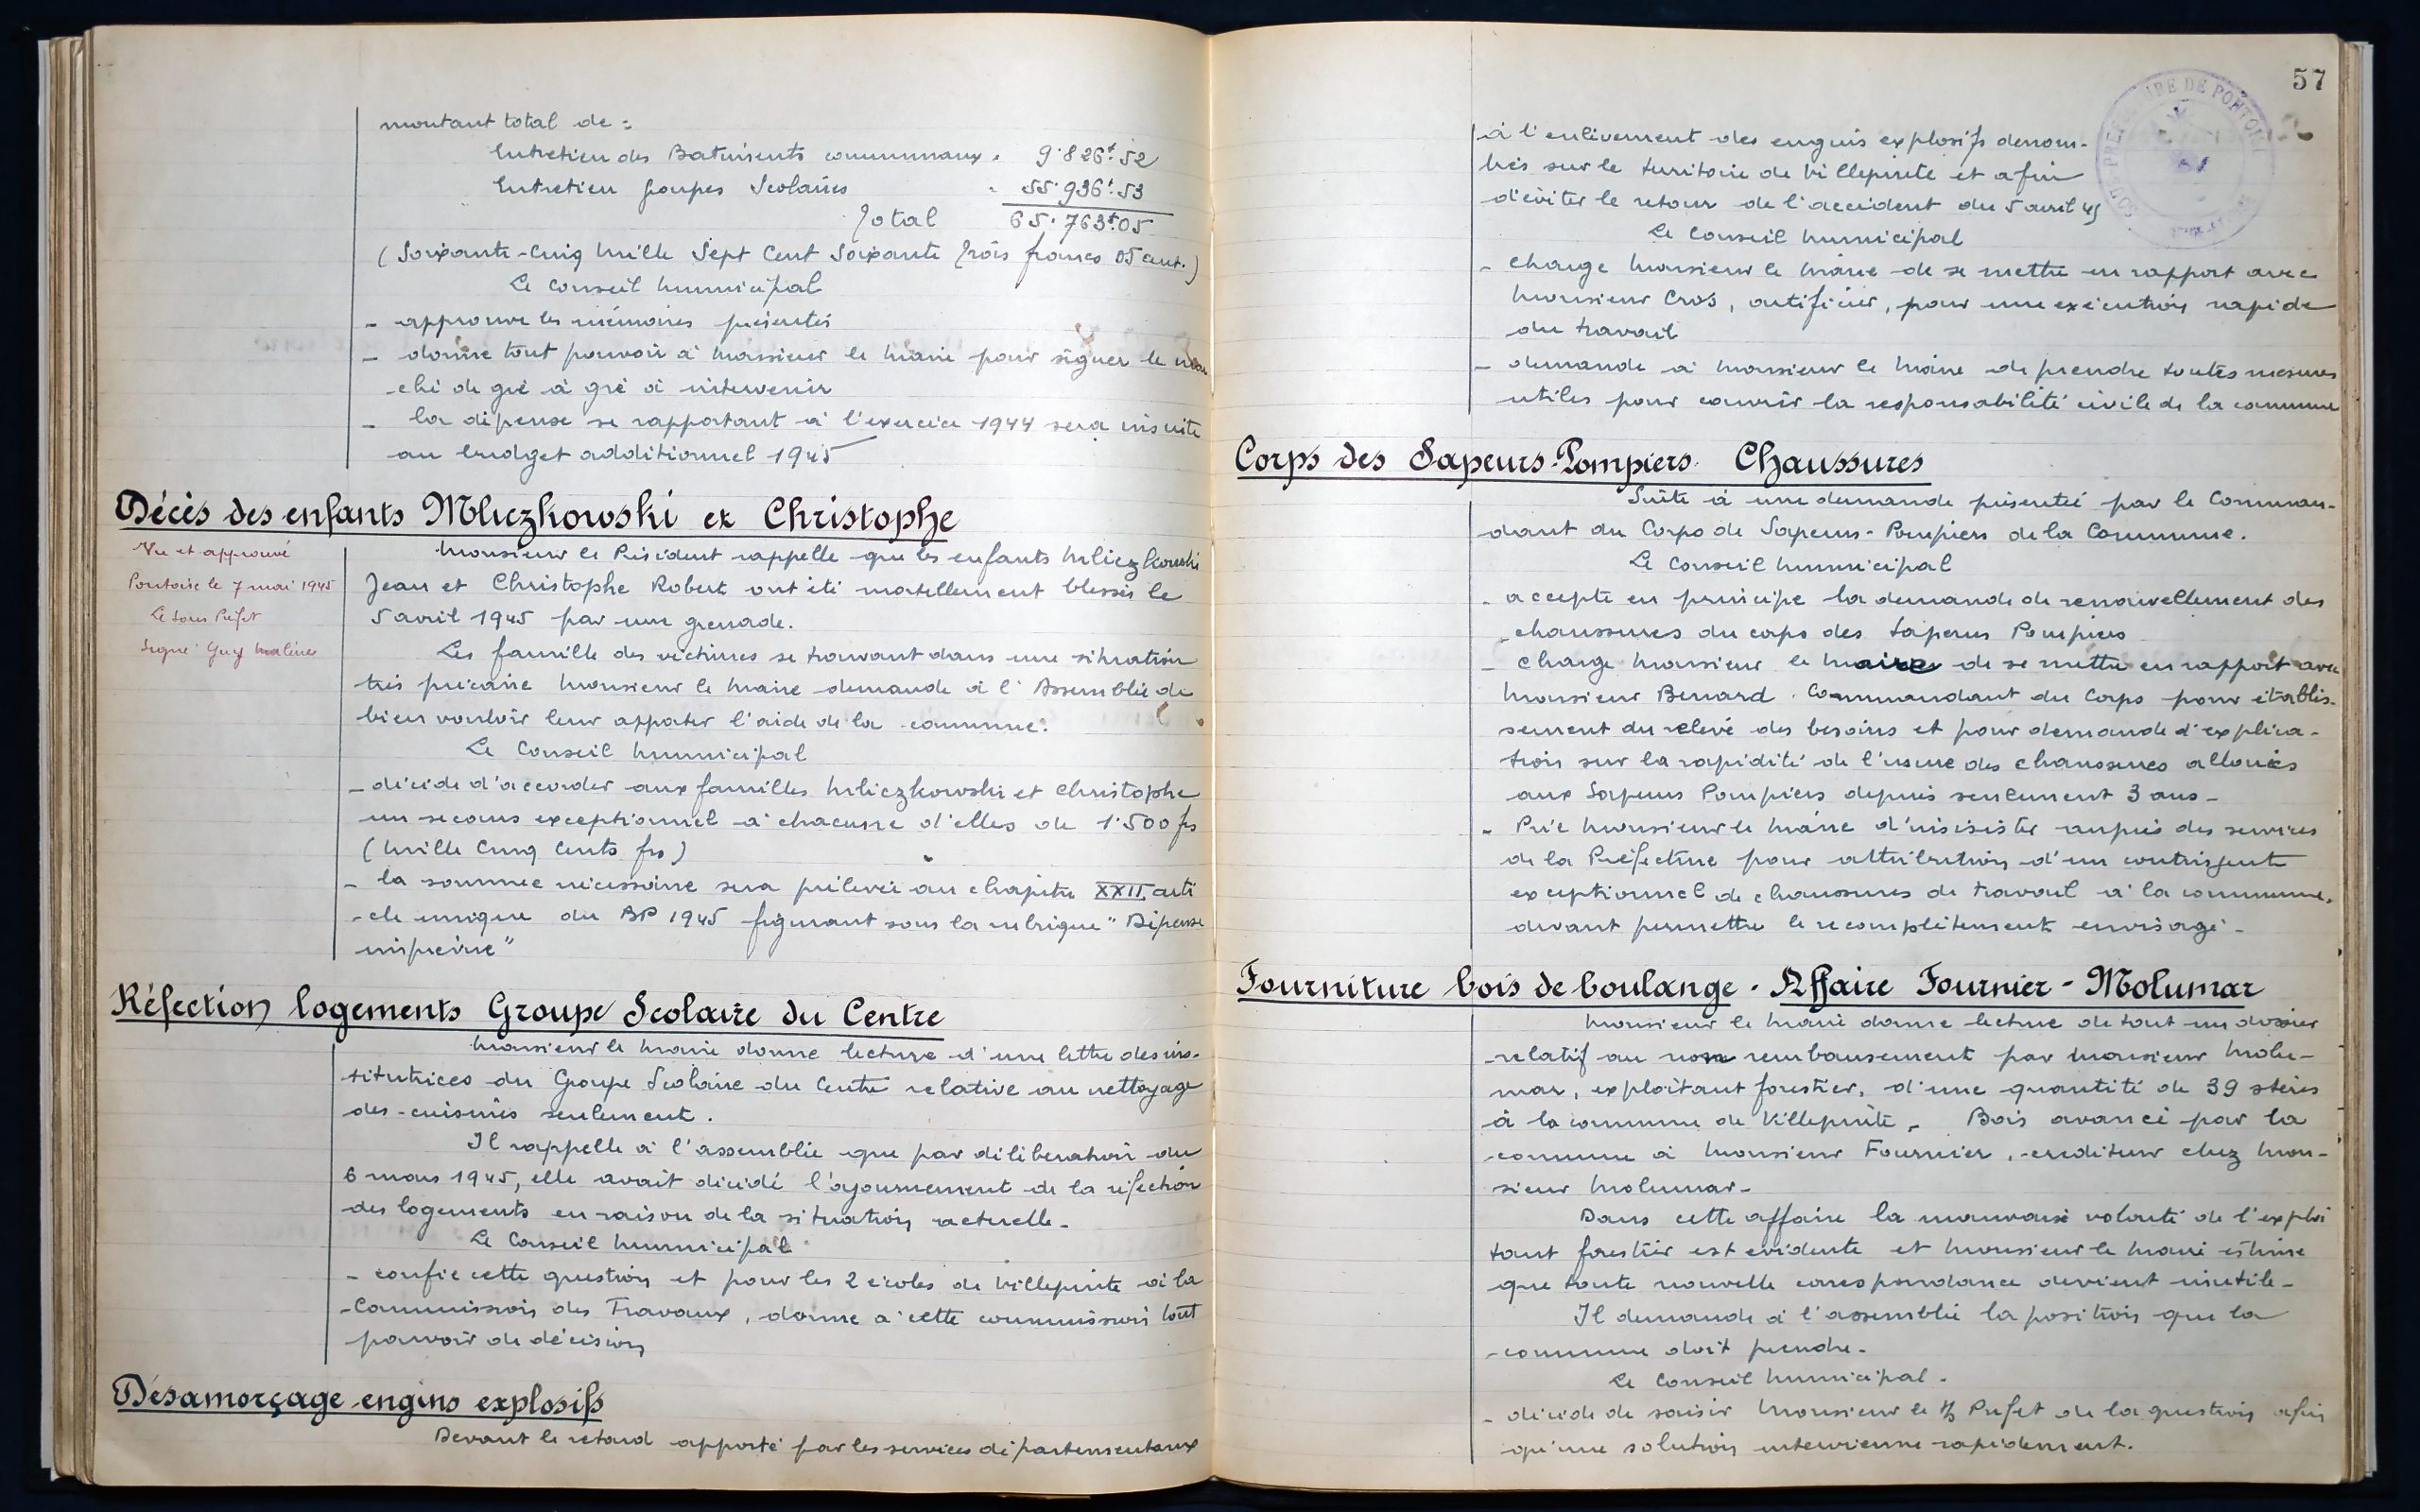 montant total de :
Entretien des Batiments communaux. 9.826f.52
Entretien groupes Scolaires . 55.936f.53
Total 65.763f.05
(Soixante-Cinq Mille Sept Cent Soixante Trois francs 05 cent.)
Le Conseil Municipal
- approuve les mémoires présentés
- donne tout pouvoir à Monsieur le Maire pour signer le mar
-ché de gré à gré à intervenir
- la dépense se rapportant à l'exercice 1944 sera inscrite
au budget additionnel 1945
Décès des enfants Mliczkowski et Christophe
Vu et approuvé
Pontoise le 7 mai 1945
Le Sous Préfet
Signé Guy Malines
Monsieur le Président rappelle que les enfants Mliczkowski
Jean et Christophe Robert ont été mortellement blessés le
5 avril 1945 par une grenade.
Les famille des victimes se trouvant dans une situation
très précaire Monsieur le Maire demande à l'Assemblée de
bien vouloir leur apporter l'aide de la commune.
Le Conseil Municipal
- décide d'accorder aux familles Mliczkowski et Christophe
un secours exceptionnel à chacune d'elles de 1.500 frs
(Mille Cinq Cents frs)
- la somme nécessaire sera prélevée au chapitre XXII arti
-cle unique du BP 1945 figurant sous la rubrique "Dépense
imprévue"
Réfection logements Groupe Scolaire du Centre
Monsieur le Maire donne lecture d'une lettre des ins-
titutrices du Groupe Scolaire du Centre relative au nettoyage
des cuisines seulement.
Il rappelle à l'assemblée que par délibération du
6 mars 1945, elle avait décidé l'ajournement de la réfection
des logements en raison de la situation actuelle -
Le Conseil Municipal
- confie cette question et pour les 2 écoles de Villepinte à la
-Commission des Travaux, donne à cette commission tout
pouvoir de décision
Désamorçage engins explosifs
Devant le retard apporté par les services départementaux
57
à l'enlèvement des engins explosifs dénom-
brés sur le territoire de Villepinte et afin
d'éviter le retour de l'accident du 5 avril 45
Le Conseil Municipal
- charge Monsieur le Maire de se mettre en rapport avec
Monsieur Cros, artificier, pour une exécution rapide
du travail
- demande à Monsieur le Maire de prendre toutes mesures
utiles pour couvrir la responsabilité civile de la commune
Corps des Sapeurs-Pompiers. Chaussures
Suite à une demande présentée par le Comman-
dant du Corps de Sapeurs-Pompiers de la Commune.
Le Conseil Municipal
- accepte en principe la demande de renouvellement des
chaussures du corps des Sapeurs Pompiers
- charge Monsieur le Maire de se mettre en rapport avec
Monsieur Benard. Commandant du Corps pour établis-
sement du relevé des besoins et pour demande d'explica-
tion sur la rapidité de l'usure des chaussures allouées
aux Sapeurs Pompiers depuis seulement 3 ans -
- Prie Monsieur le Maire d'insisister auprès des services
de la Préfecture pour attribution d'un contingent
exceptionnel de chaussures de travail à la commune,
devant permettre le recomplètement envisagé -
Fourniture bois de boulange - Affaire Fournier - Molumar
Monsieur le Maire donne lecture de tout un dossier
relatif au non remboursement par Monsieur Molu-
mar, exploitant forestier, d'une quantité de 39 stères
à la commune de Villepinte - Bois avancé par la
commune à Monsieur Fournier, créditeur chez Mon-
sieur Molumar -
Dans cette affaire la mauvaise volonté de l'exploi
tant forestier est évidente et Monsieur le Maire estime
que toute nouvelle correspondance devient inutile -
Il demande à l'assemblée la position que la
commune doit prendre -
Le Conseil Municipal -
- décide de saisir Monsieur le S/ Préfet de la question afin
qu'une solution intervienne rapidement.